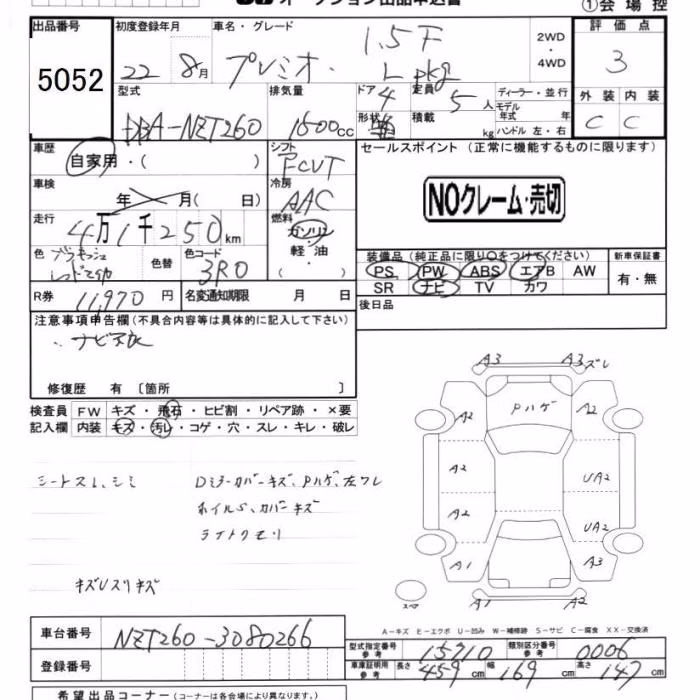 オークション出品申込書
①会場控
出品番号 初度登録年月 車名・グレード 2WD・4WD 評価点
5052 22 8月 プレミオ・ 1.5F Lpkg 3
型式 排気量 ドア 定員 ディーラー・並行 外装 内装
DBA-NZT260 1500cc 4 5人 モデル年式 年式 C C
形状 積載 kg ハンドル 左・右
車歴 シフト セールスポイント (正常に機能するものに限ります)
自家用・( ) FCVT
車検 年 月( 日) 冷房 AAC
NOクレーム・売切
走行 4万1千250km 燃料 ガソリン・軽油・( )
色 色替 色コード 3R0
装備品(純正品に限り○をつけてください) 新車保証書
PS PW ABS エアB AW 有・無
SR ナビ TV カワ
R券 11,970円 名変通知期限 月 日
後日品
注意事項申告欄(不具合内容等は具体的に記入して下さい)
修復歴 有 〔箇所 〕
検査員 FW キズ・飛石・ヒビ割・リペア跡・×要
記入欄 内装 キズ・汚レ・コゲ・穴・スレ・キレ・破レ
シートスレ、シミ
Dミラーカバーキズ、Pハゲ、左ワレ
ホイルS、カバーキズ
ライトクモリ
キズUスリキズ
A3 A3 ズレ
A2 Pハゲ A2
A2 UA2
A2 UA2
A1 A3
スペア A1 A2
A-キズ E-エクボ U-凹み W-補修跡 S-サビ C-腐食 XX-交換済
車台番号 NZT260-3080266
登録番号
型式指定番号 参考 15710 類別区分番号 参考 0006
車庫証明用 参考 長さ 459cm 幅 169cm 高さ 147cm
希望出品コーナー(コーナーは各会場により異なります。)